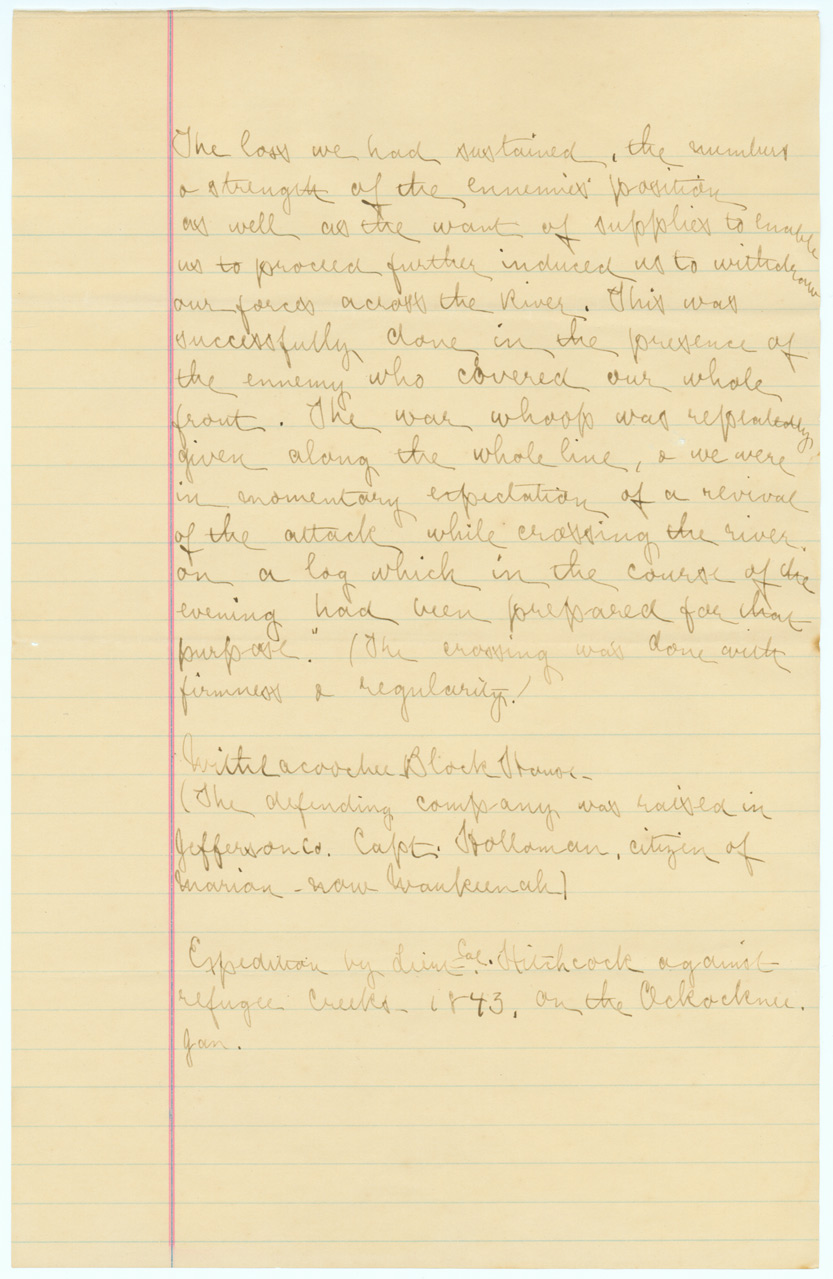 The loss we had sustained, the numbers
& strength of the ennemies' position
as well as the want of supplies to enable
us to proceed further induced us to withdraw
our forces across the River. This was
successfully done in the presence of
the ennemy who covered our whole
front. The war whoop was repeatedly
given along the whole line, & we were
in momentary expectation of a revival
of the attack while crossing the river.
on a log which in the course of the
evening had been prepared for that
purpose." (The crossing was done with
firmness & regularity.)
Withlacoochee Block House -
(The defending company was raised in
Jefferson Co. Capt. Holloman, citizen of
Marion - now Waukeenah)
Expedition by Lieut Col. Hitchcock against
refugee Creeks 1843, on the Ockocknee.
Jan.